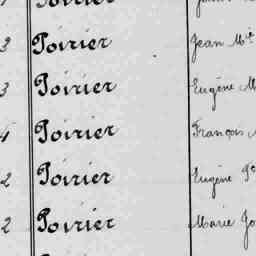 Poirier
3 Poirier Jean M
3 Poirier Eugène M
4 Poirier François
2 Poirier Eugène
2 Poirier Marie Jo